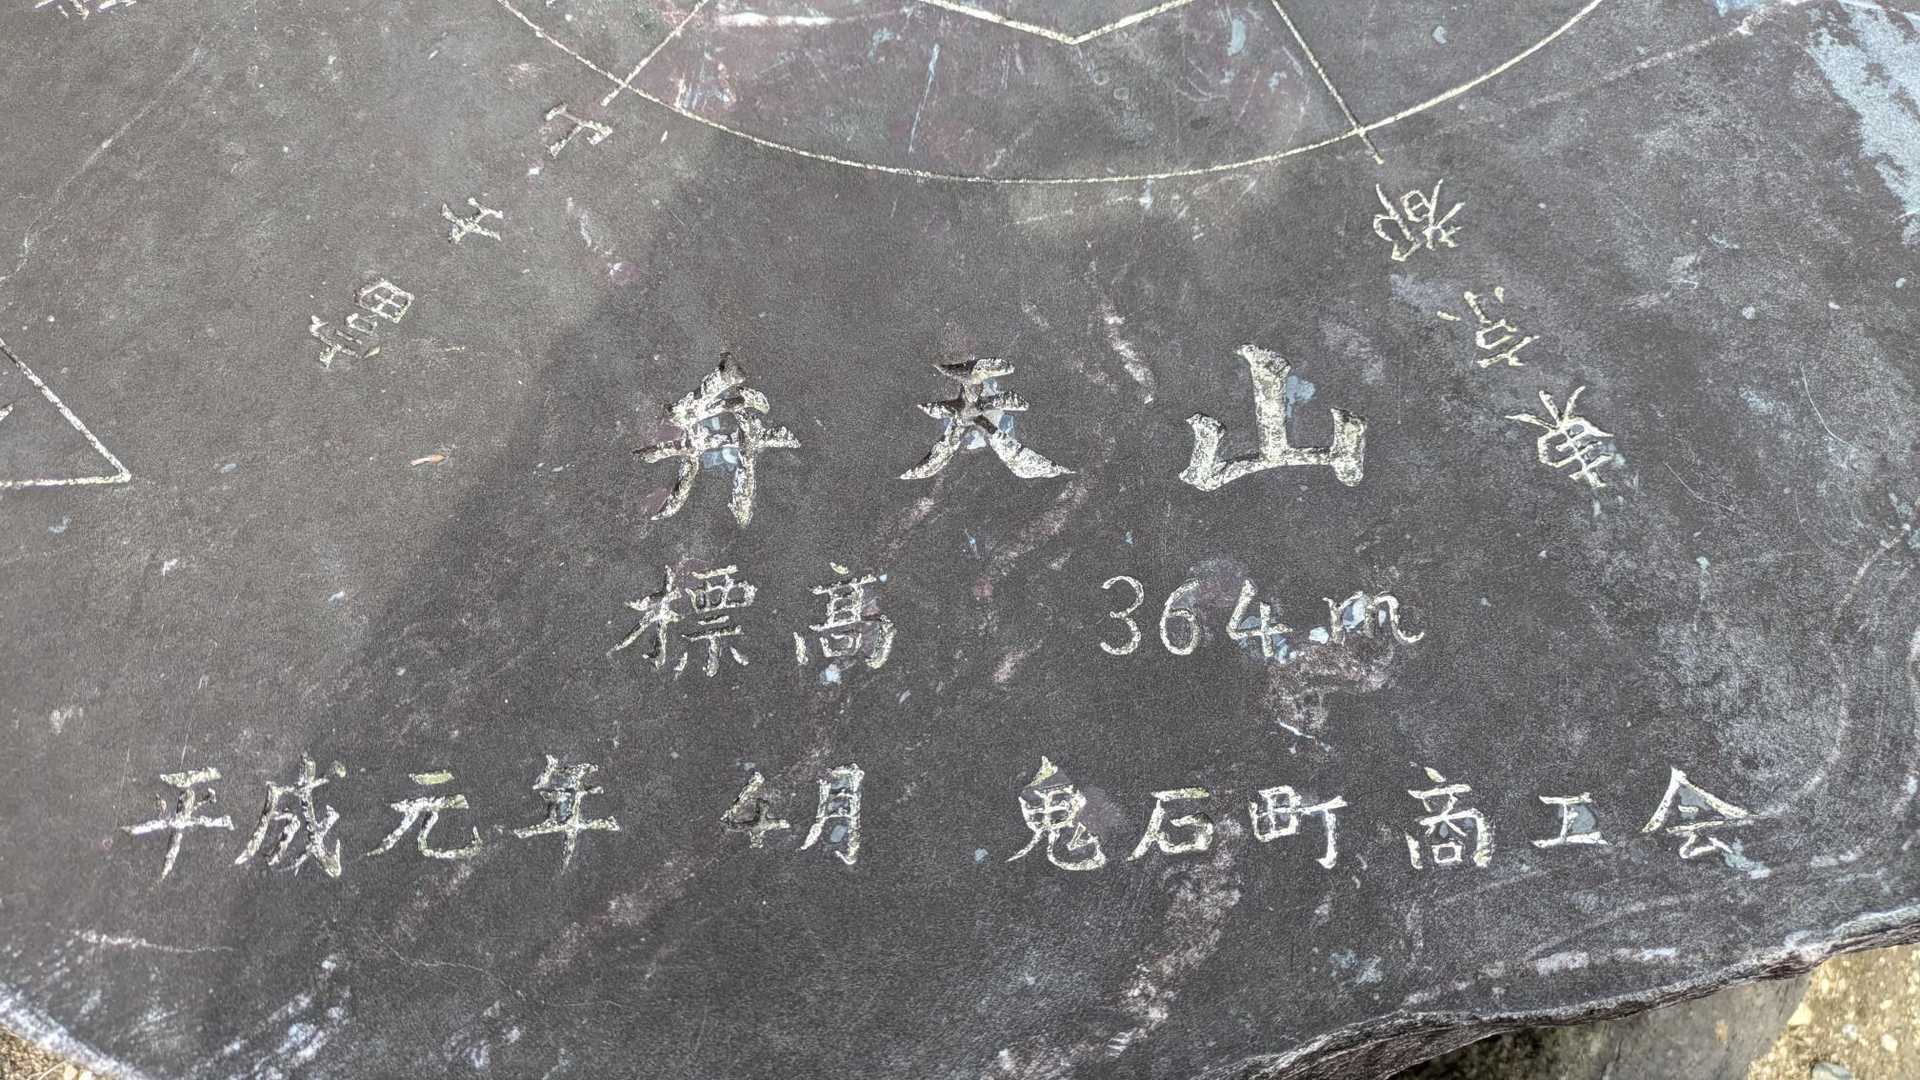 富士山
東京都
弁天山
標高 364m
平成元年 4月 鬼石町商工会